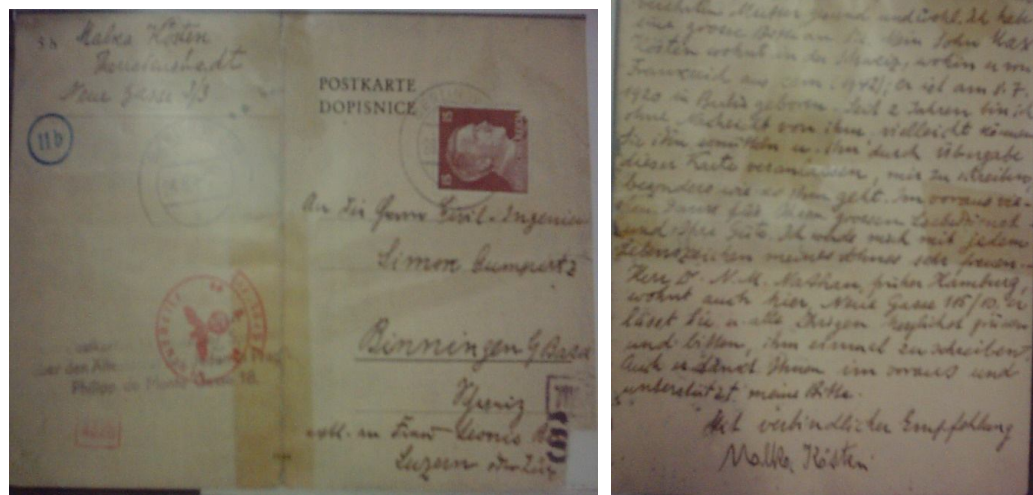 Malka Kösten
Theresienstadt
Neue Gasse
11b
POSTKARTE
DOPISNICE
15
15
An die Herrn Zivil-Ingenieur
Simon Gumpertz
Binningen b/Basel
Schweiz
an Frau Leonie
Luzern oder
über den
Philipp
Mutter gesund und wohl. Ich habe
eine grosse Bitte an Sie. Mein Sohn Max
Kösten wohnt in der Schweiz, wohin er von
Frankreich aus kam (1942); er ist am 5.7.
1920 in Berlin geboren. Seit 2 Jahren bin ich
ohne Nachricht von ihm. Vielleicht können
Sie ihn ermitteln u. ihn durch Übergabe
dieser Karte veranlassen, mir zu schreiben
besonders wie es ihm geht. Im voraus vie-
len Dank für diesen grossen Liebesdienst
und Ihre Güte. Ich würde mich mit jedem
Lebenszeichen meines Sohnes sehr freuen.
Herr D. N. M. Nathan, früher Hamburg,
wohnt auch hier Neue Gasse. Er
lässt Sie u. alle Ihrigen herzlichst grüssen
und bitten, ihm einmal zu schreiben
Auch er dankt Ihnen im voraus und
unterstützt meine Bitte.
Mit verbindlicher Empfehlung
Malka Kösten